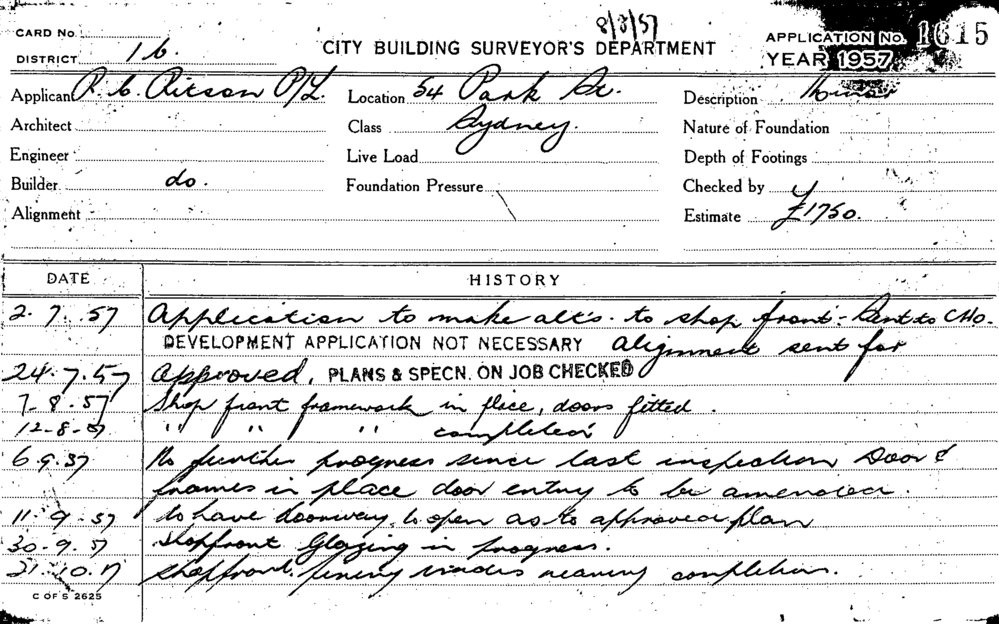 8/8/57
CARD No.
DISTRICT 16.
CITY BUILDING SURVEYOR'S DEPARTMENT
APPLICATION No. 1615
YEAR 1957
Applicant R. C. Ritson P/L. Location 54 Park St. Description Minor
Architect Class Sydney. Nature of Foundation
Engineer Live Load Depth of Footings
Builder. do. Foundation Pressure Checked by
Alignment Estimate £1750.
DATE HISTORY
2. 7. 57 Application to make alts. to shop front - Sent to CHO.
DEVELOPMENT APPLICATION NOT NECESSARY Alignment sent for
24.7.57 Approved. PLANS & SPECN. ON JOB CHECKED
7-8.57 Shop front framework in place, doors fitted.
12-8-57 " " " completed
6.9.57 No further progress since last inspection Door &
frames in place door entry to be amended.
11.9.57 to have doorway to open as to approved plan
30.9.57 Shopfront Glazing in progress.
31.10.57 shopfront. nearing completion.
C OF S 2625